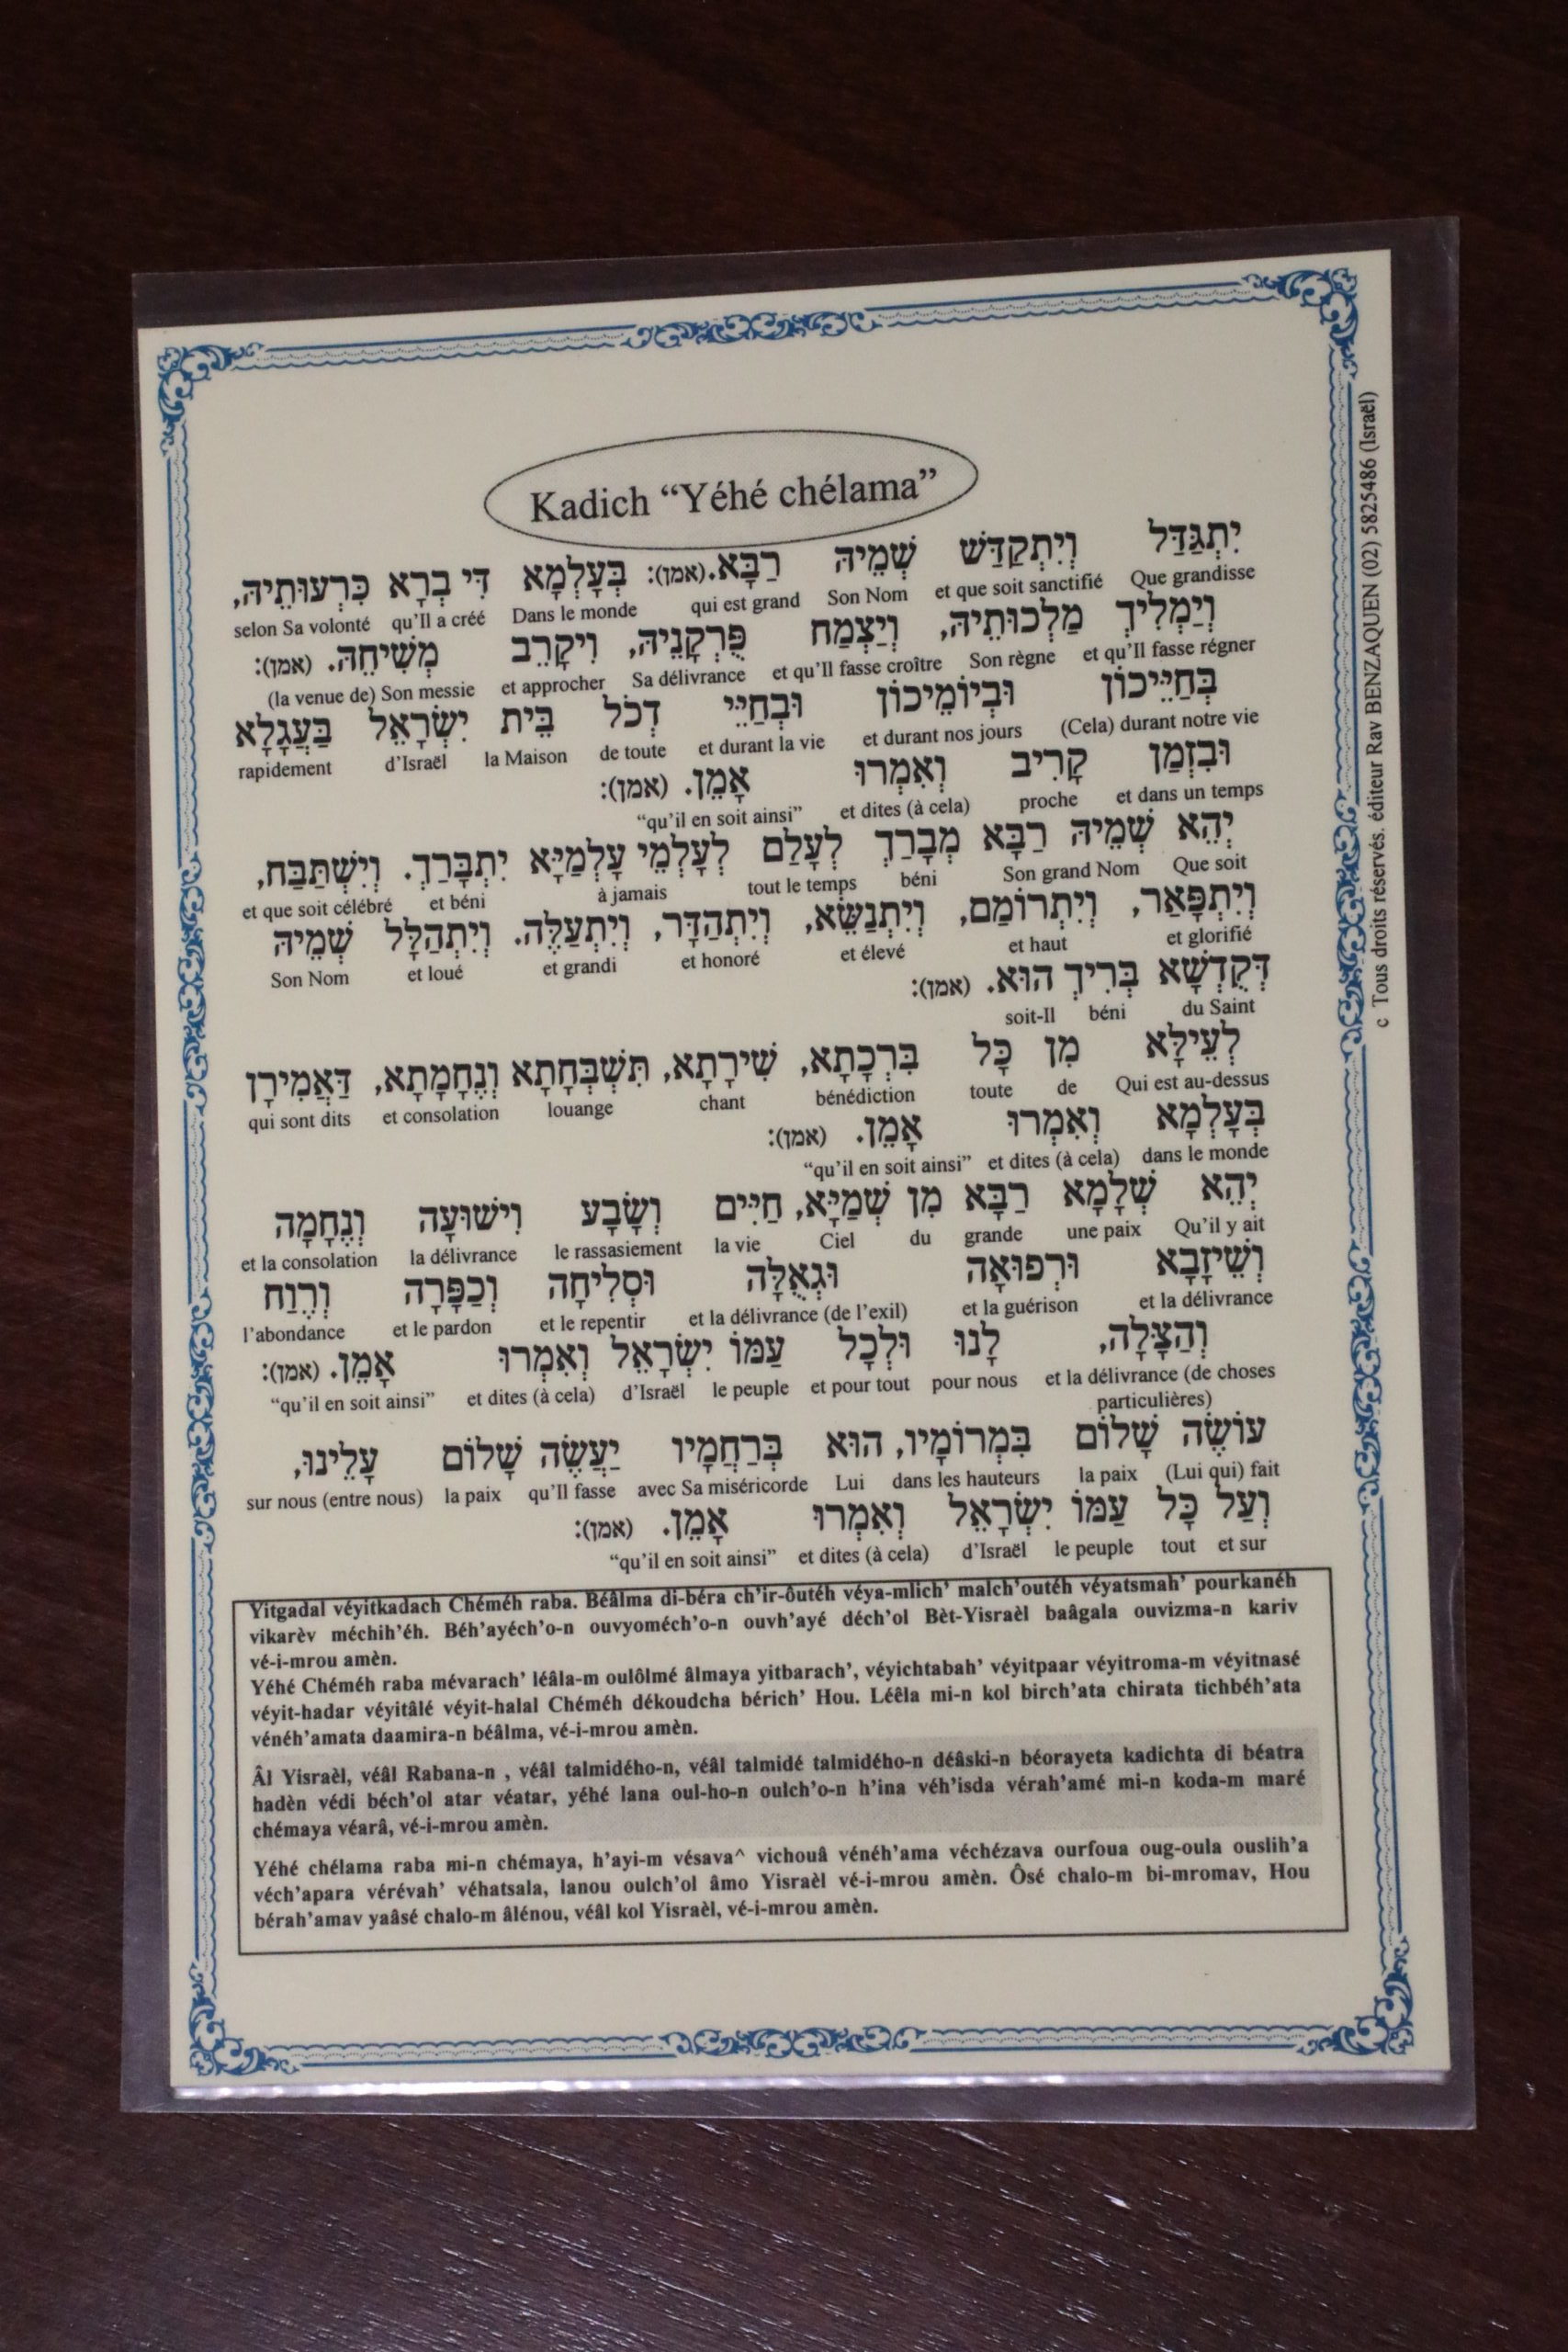 Kadich “Yéhé chélama”
יִתְגַּדַּל וְיִתְקַדַּשׁ שְׁמֵיהּ רַבָּא. (אמן): בְּעָלְמָא דִּי בְרָא כִּרְעוּתֵיהּ,
Que grandisse et que soit sanctifié Son Nom qui est grand Dans le monde qu’Il a créé selon Sa volonté
וְיַמְלִיךְ מַלְכוּתֵיהּ, וְיַצְמַח פֻּרְקָנֵיהּ, וִיקָרֵב מְשִׁיחֵהּ. (אמן):
et qu’Il fasse régner Son règne et qu’Il fasse croître Sa délivrance et approcher (la venue de) Son messie
בְּחַיֵּיכוֹן וּבְיוֹמֵיכוֹן וּבְחַיֵּי דְכֹל בֵּית יִשְׂרָאֵל בַּעֲגָלָא
(Cela) durant notre vie et durant nos jours et durant la vie de toute la Maison d’Israël rapidement
וּבִזְמַן קָרִיב וְאִמְרוּ אָמֵן. (אמן):
et dans un temps proche et dites (à cela) “qu’il en soit ainsi”
יְהֵא שְׁמֵיהּ רַבָּא מְבָרַךְ לְעָלַם לְעָלְמֵי עָלְמַיָּא יִתְבָּרַךְ. וְיִשְׁתַּבַּח,
Que soit Son grand Nom béni tout le temps à jamais et béni et que soit célébré
וְיִתְפָּאַר, וְיִתְרוֹמַם, וְיִתְנַשֵּׂא, וְיִתְהַדָּר, וְיִתְעַלֶּה. וְיִתְהַלָּל שְׁמֵיהּ
et glorifié et haut et élevé et honoré et grandi et loué Son Nom
דְּקֻדְשָׁא בְּרִיךְ הוּא. (אמן):
du Saint béni soit-Il
לְעֵילָּא מִן כָּל בִּרְכָתָא, שִׁירָתָא, תִּשְׁבְּחָתָא וְנֶחָמָתָא, דַּאֲמִירָן
Qui est au-dessus de toute bénédiction chant louange et consolation qui sont dits
בְּעָלְמָא וְאִמְרוּ אָמֵן. (אמן):
dans le monde et dites (à cela) “qu’il en soit ainsi”
יְהֵא שְׁלָמָא רַבָּא מִן שְׁמַיָּא, חַיִּים וְשָׂבָע וִישׁוּעָה וְנֶחָמָה
Qu’il y ait une paix grande du Ciel la vie le rassasiement la délivrance et la consolation
וְשֵׁיזָבָא וּרְפוּאָה וּגְאֻלָּה וּסְלִיחָה וְכַפָּרָה וְרֶוַח
et la délivrance et la guérison et la délivrance (de l’exil) et le repentir et le pardon l’abondance
וְהַצָּלָה, לָנוּ וּלְכָל עַמּוֹ יִשְׂרָאֵל וְאִמְרוּ אָמֵן. (אמן):
et la délivrance (de choses pour nous et pour tout le peuple d’Israël et dites (à cela) “qu’il en soit ainsi”
particulières)
עוֹשֶׂה שָׁלוֹם בִּמְרוֹמָיו, הוּא בְּרַחֲמָיו יַעֲשֶׂה שָׁלוֹם עָלֵינוּ,
(Lui qui) fait la paix dans les hauteurs Lui avec Sa miséricorde qu’Il fasse la paix sur nous (entre nous)
וְעַל כָּל עַמּוֹ יִשְׂרָאֵל וְאִמְרוּ אָמֵן. (אמן):
et sur tout le peuple d’Israël et dites (à cela) “qu’il en soit ainsi”
Yitgadal véyitkadach Chéméh raba. Béâlma di-béra ch’ir-ôutéh véya-mlich’ malch’outéh véyatsmah’ pourkanéh
vikarèv méchih’éh. Béh’ayéch’o-n ouvyoméch’o-n ouvh’ayé déch’ol Bèt-Yisraèl baâgala ouvizma-n kariv
vé-i-mrou amèn.
Yéhé Chéméh raba mévarach’ léâla-m oulôlmé âlmaya yitbarach’, véyichtabah’ véyitpaar véyitroma-m véyitnasé
véyit-hadar véyitâlé véyit-halal Chéméh dékoudcha bérich’ Hou. Léêla mi-n kol birch’ata chirata tichbéh’ata
vénéh’amata daamira-n béâlma, vé-i-mrou amèn.
Âl Yisraèl, véâl Rabana-n , véâl talmidého-n, véâl talmidé talmidého-n déâski-n béorayeta kadichta di béatra
hadèn védi béch’ol atar véatar, yéhé lana oul-ho-n oulch’o-n h’ina véh’isda vérah’amé mi-n koda-m maré
chémaya véarâ, vé-i-mrou amèn.
Yéhé chélama raba mi-n chémaya, h’ayi-m vésava^ vichouâ vénéh’ama véchézava ourfoua oug-oula ouslih’a
véch’apara vérévah’ véhatsala, lanou oulch’ol âmo Yisraèl vé-i-mrou amèn. Ôsé chalo-m bi-mromav, Hou
bérah’amav yaâsé chalo-m âlénou, véâl kol Yisraèl, vé-i-mrou amèn.
c Tous droits réservés. éditeur Rav BENZAQUEN (02) 5825486 (Israël)